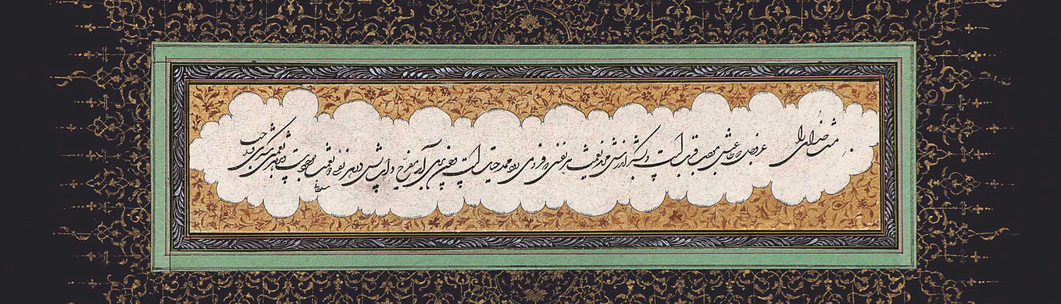 منت خدای را عز و جل که طاعتش موجب قربت است و بشکر اندرش مزید نعمت هر نفسی که فرو می‌رود ممد حیات است و چون بر می‌آید مفرح ذات پس در هر نفسی دو نعمت موجود است و بر هر نعمتی شکری واجب